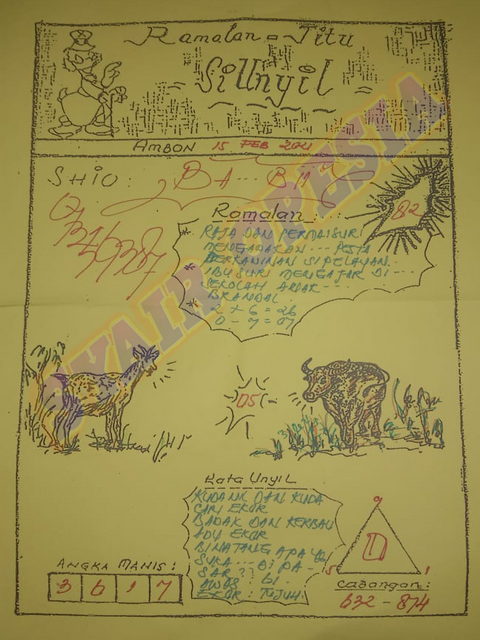 Ramalan = Jitu
SiUnyil
AMBON 15 FEB 2021
SHIO: BA... BM
82
Ramalan
* RAJA DAN PERMAISURI
MENGADAKAN --- PESTA
PERKAWINAN SI PELAYAN.
* IBU SURI MENGAJAR DI--
SEKOLAH ANAK ---
BRANDAL
2 + 6 = 26
0 - 7 = 07
SYAIR
05
Kata Unyil
KUDANK DAN KUDA
CARI EKOR
BADAK DAN KERBAU
ADU EKOR
BINATANG APA YG
SUKA --- DI PA-
EKOR : TUJUH
9
D
5 1
ANGKA MANIS:
3 6 1 7
CABANGAN:
632 - 874